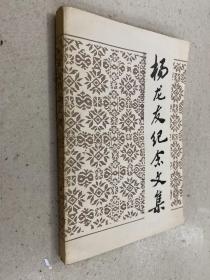 杨龙友纪念文集